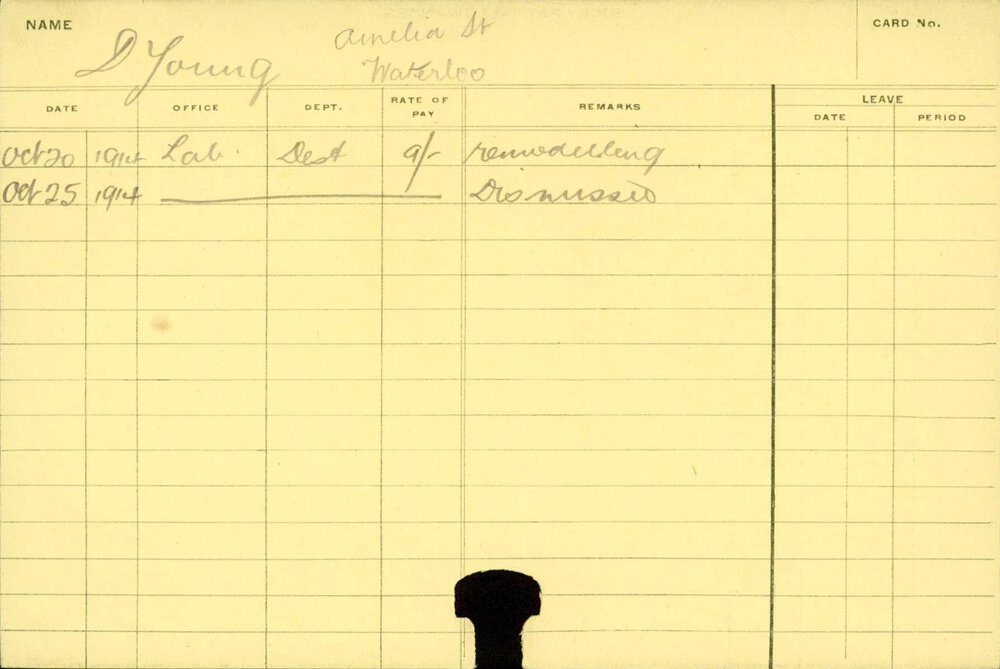 NAME D Young Amelia St Waterloo CARD No.
DATE OFFICE DEPT. RATE OF PAY REMARKS LEAVE
DATE PERIOD
Oct 20 1914 Lab. Dest 9/- remodelling
Oct 25 1914 Dismissed